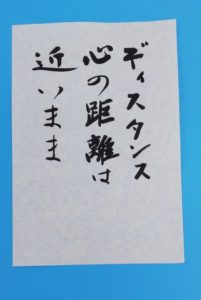 ディスタンス
心の距離は
近いまま